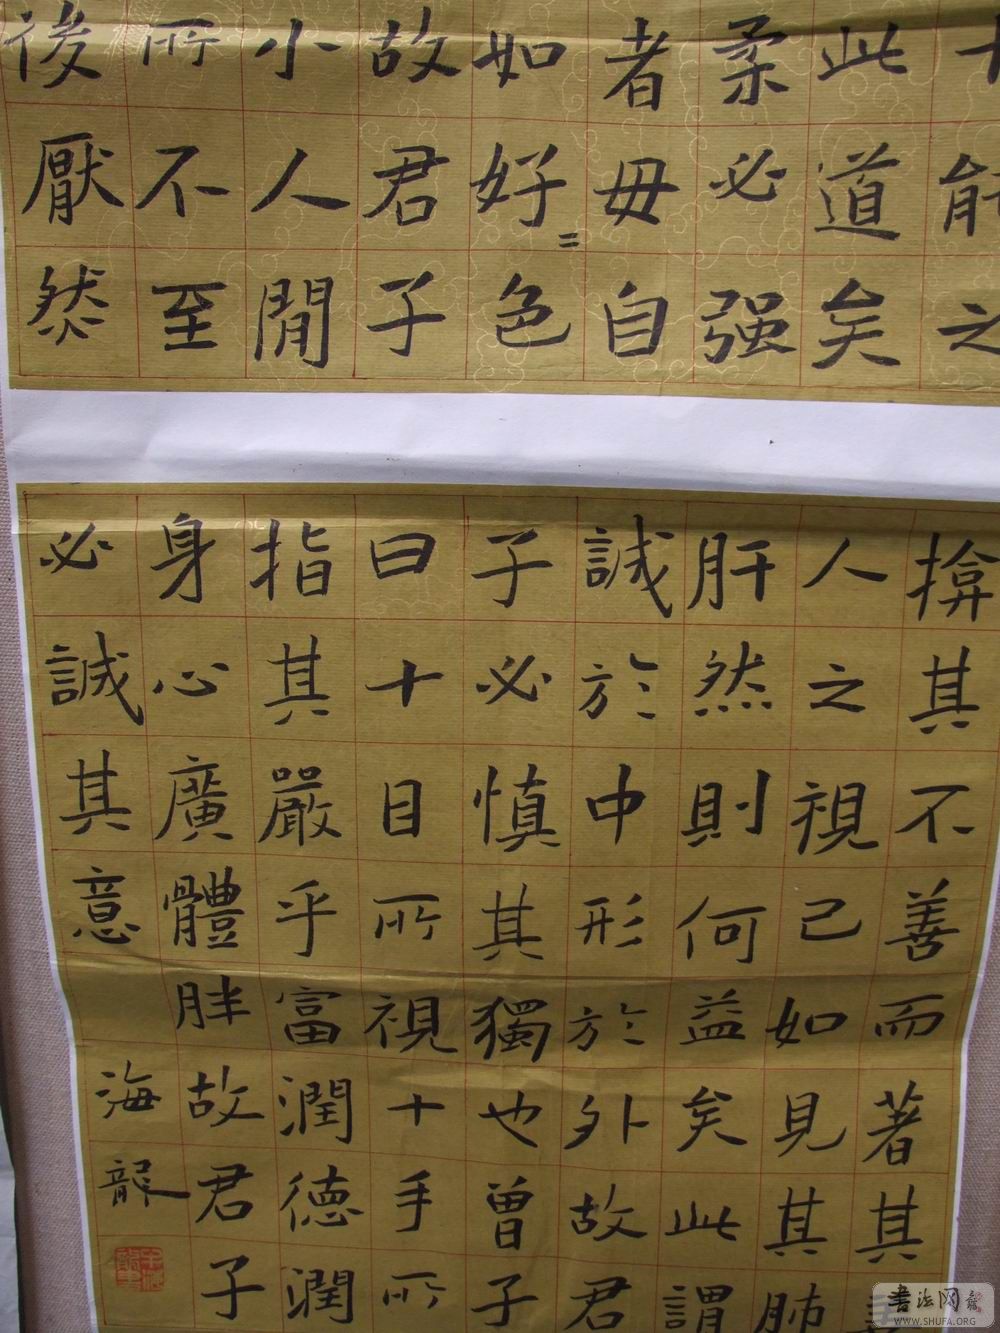 能之
此道矣
柔必强
者毋自
如好〻色
故君子
小人閒
所不至
後厭然
揜其不善而著其
人之視己如見其肺
肝然則何益矣此謂
誠於中形於外故君
子必慎其獨也曾子
曰十目所視十手所
指其嚴乎富潤德潤
身心廣體胖故君子
必誠其意
海龍
書法网
WWW.SHUFA.ORG